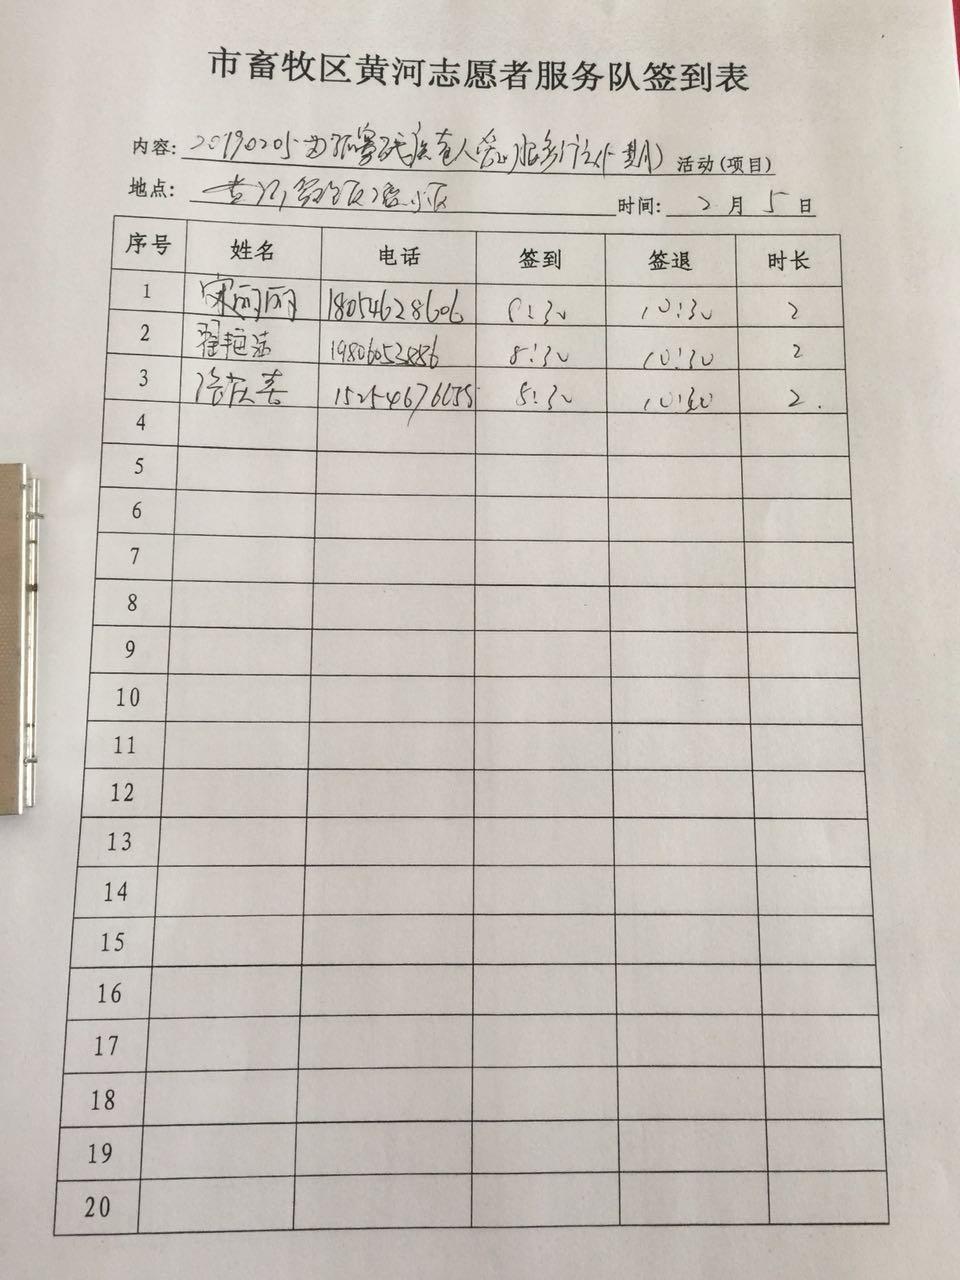 市畜牧区黄河志愿者服务队签到表
内容: 20190205 为孤寡残疾老人爱心服务行 活动(项目)
地点: 黄河 时间: 2 月 5 日
序号 姓名 电话 签到 签退 时长
1 宋丽丽 18054628606 8:30 10:30 2
2 翟艳 8:30 10:30 2
3 徐庆春 8:30 10:30 2.
4
5
6
7
8
9
10
11
12
13
14
15
16
17
18
19
20